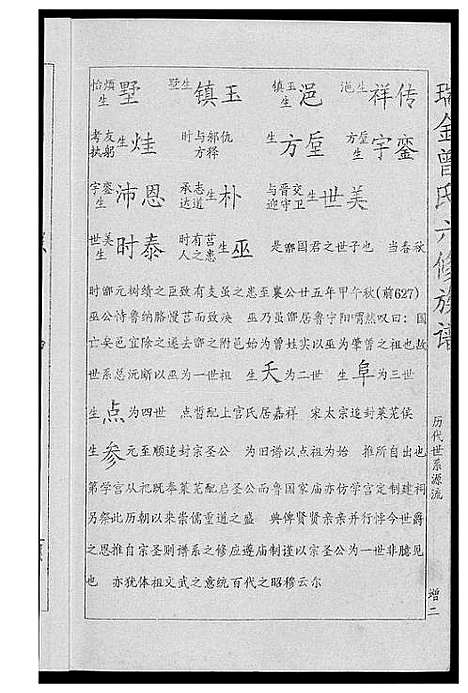 瑞金曾氏六修族谱
历代世系源流
增二
怡烦生墅 墅生镇玉 镇玉生浥 浥生祥传
考友扶躬生烓 时与郝仇方释 生方垕 方垕生宇銮
宇銮生沛恩 承志达道生朴 与晋交迎守卫生世美
世美生时泰 时有莒人之恚生巫 是鄫国君之世子也 当春秋
时鄫元树绩之臣致有支虽之恚至襄公廿五年甲午秋(前627)
巫公恃鲁纳赂慢莒而致涣 巫乃虽鄫居鲁宁阳喟然叹曰：国
亡矣邑宜除之遂去鄫之附邑始为曾姓实以巫为肇曾之祖也故
世系总沅断以巫为一世祖 生夭为二世 生阜为三世
生点为四世 点晳配上宫氏居嘉祥 宋太宗追封莱芜侯
生参元至顺追封宗圣公 为旧谱以点祖为始 推所自出也
第学宫从祀既奉莱芜配启圣公而鲁国家庙亦仿学宫定制建祠
另祭此历朝以来崇儒重道之盛 典俾贤贤亲亲并行悖今世爵
之恩推自宗圣则谱系之修应遵庙制谨以宗圣公为一世非臆见
也 亦犹体祖文武之意统百代之昭穆云尔